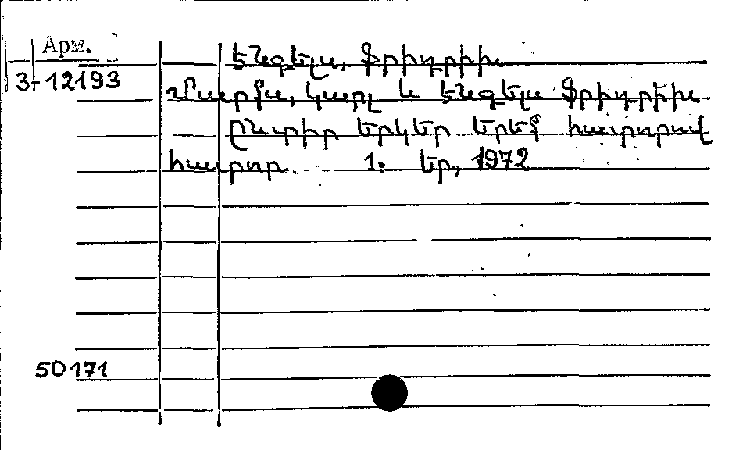 Арм.
3-12193
Էնգելս, Ֆրիդրիխ
Մարքս, Կարլ և Էնգելս Ֆրիդրիխ
Ընտիր երկեր երեք հատորով
հատոր 1: Եր, 1972
50171